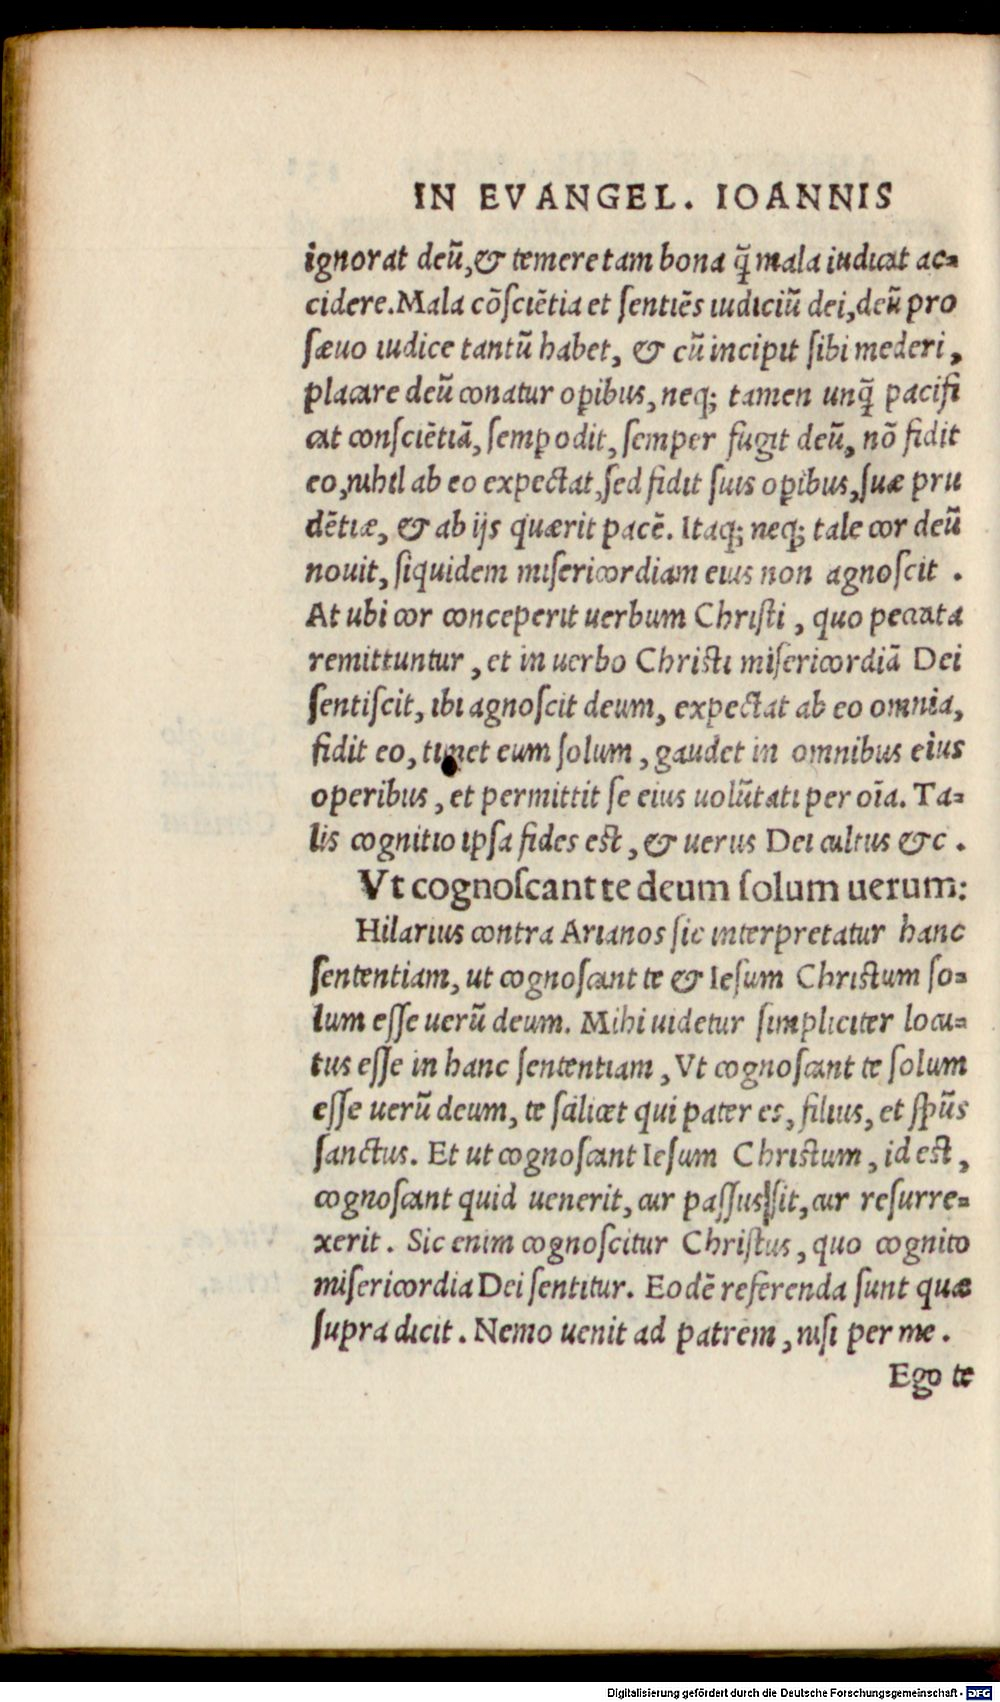 IN EVANGEL. IOANNIS
ignorat deū,& temere tam bona q̄ mala iudicat ac=
cidere.Mala cōſciētia et ſentiēs iudiciū dei,deū pro
ſæuo iudice tantū habet, & cū incipit ſibi mederi,
placare deū conatur opibus, neq; tamen unq̄ pacifi
cat conſciētiā, ſemp odit, ſemper fugit deū, nō fidit
eo,nihil ab eo expectat,ſed fidit ſuis opibus,ſuæ pru
dētiæ, & ab ijs quærit pacē. Itaq; neq; tale cor deū
nouit, ſiquidem miſericordiam eius non agnoſcit .
At ubi cor conceperit uerbum Chriſti , quo peccata
remittuntur , et in uerbo Chriſti miſericordiā Dei
ſentiſcit, ibi agnoſcit deum, expectat ab eo omnia,
fidit eo, timet eum ſolum , gaudet in omnibus eius
operibus , et permittit ſe eius uolūtati per oīa. Ta=
lis cognitio ipſa fides eſt , & uerus Dei cultus &c .
Vt cognoſcant te deum ſolum uerum:
Hilarius contra Arianos ſic interpretatur hanc
ſententiam, ut cognoſcant te & Ieſum Chriſtum ſo=
lum eſſe uerū deum. Mihi uidetur ſimpliciter locu=
tus eſſe in hanc ſententiam , Vt cognoſcant te ſolum
eſſe uerū deum, te ſcilicet qui pater es, filius, et ſpūs
ſanctus. Et ut cognoſcant Ieſum Chriſtum , id eſt ,
cognoſcant quid uenerit, cur paſſus ſit, cur reſurre=
xerit . Sic enim cognoſcitur Chriſtus , quo cognito
miſericordia Dei ſentitur. Eodē referenda ſunt quæ
ſupra dicit . Nemo uenit ad patrem , niſi per me .
Ego te
Digitalisierung gefördert durch die Deutsche Forschungsgemeinschaft - DFG